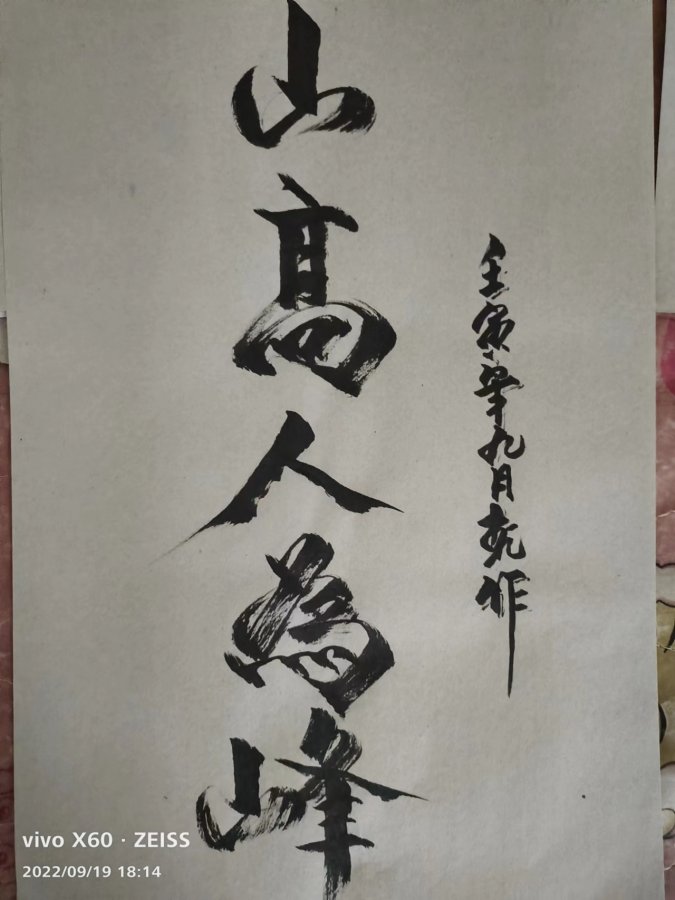 山高人為峰
壬寅年九月乾作
vivo X60 · ZEISS
2022/09/19 18:14